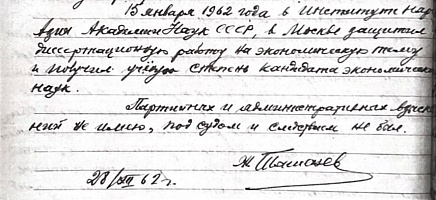 15 января 1962 года в Институте нар.
Азии Академии Наук СССР, в Москве защитил
диссертационную работу на экономическую тему
и получил учёную степень кандидата экономических
наук.
Партийных и административных взыска-
ний не имею, под судом и следствием не был.
28/XII 62 г.